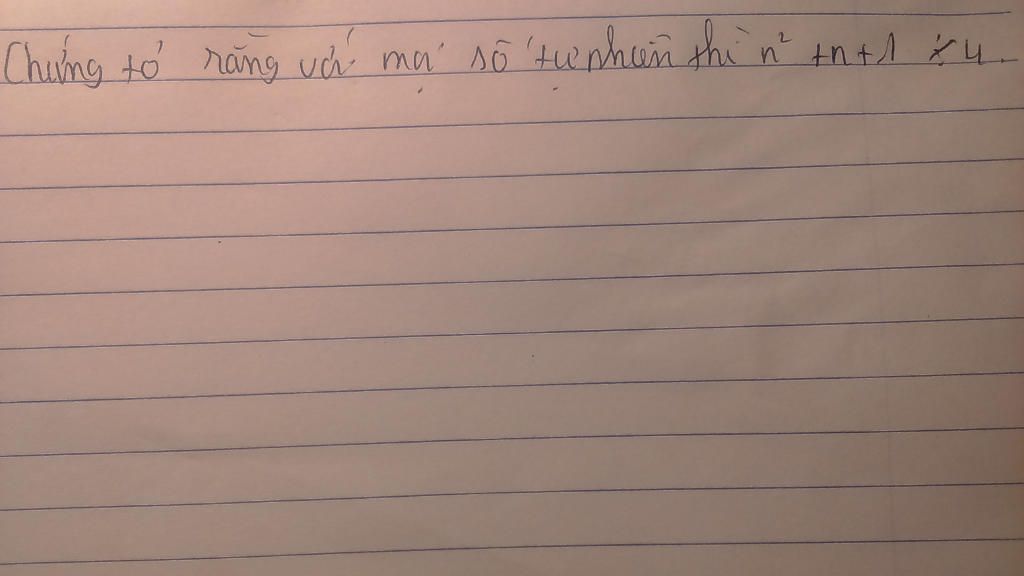 Chứng tỏ rằng với mọi số tự nhiên thì n² + n + 1 ⋮̸ 4.